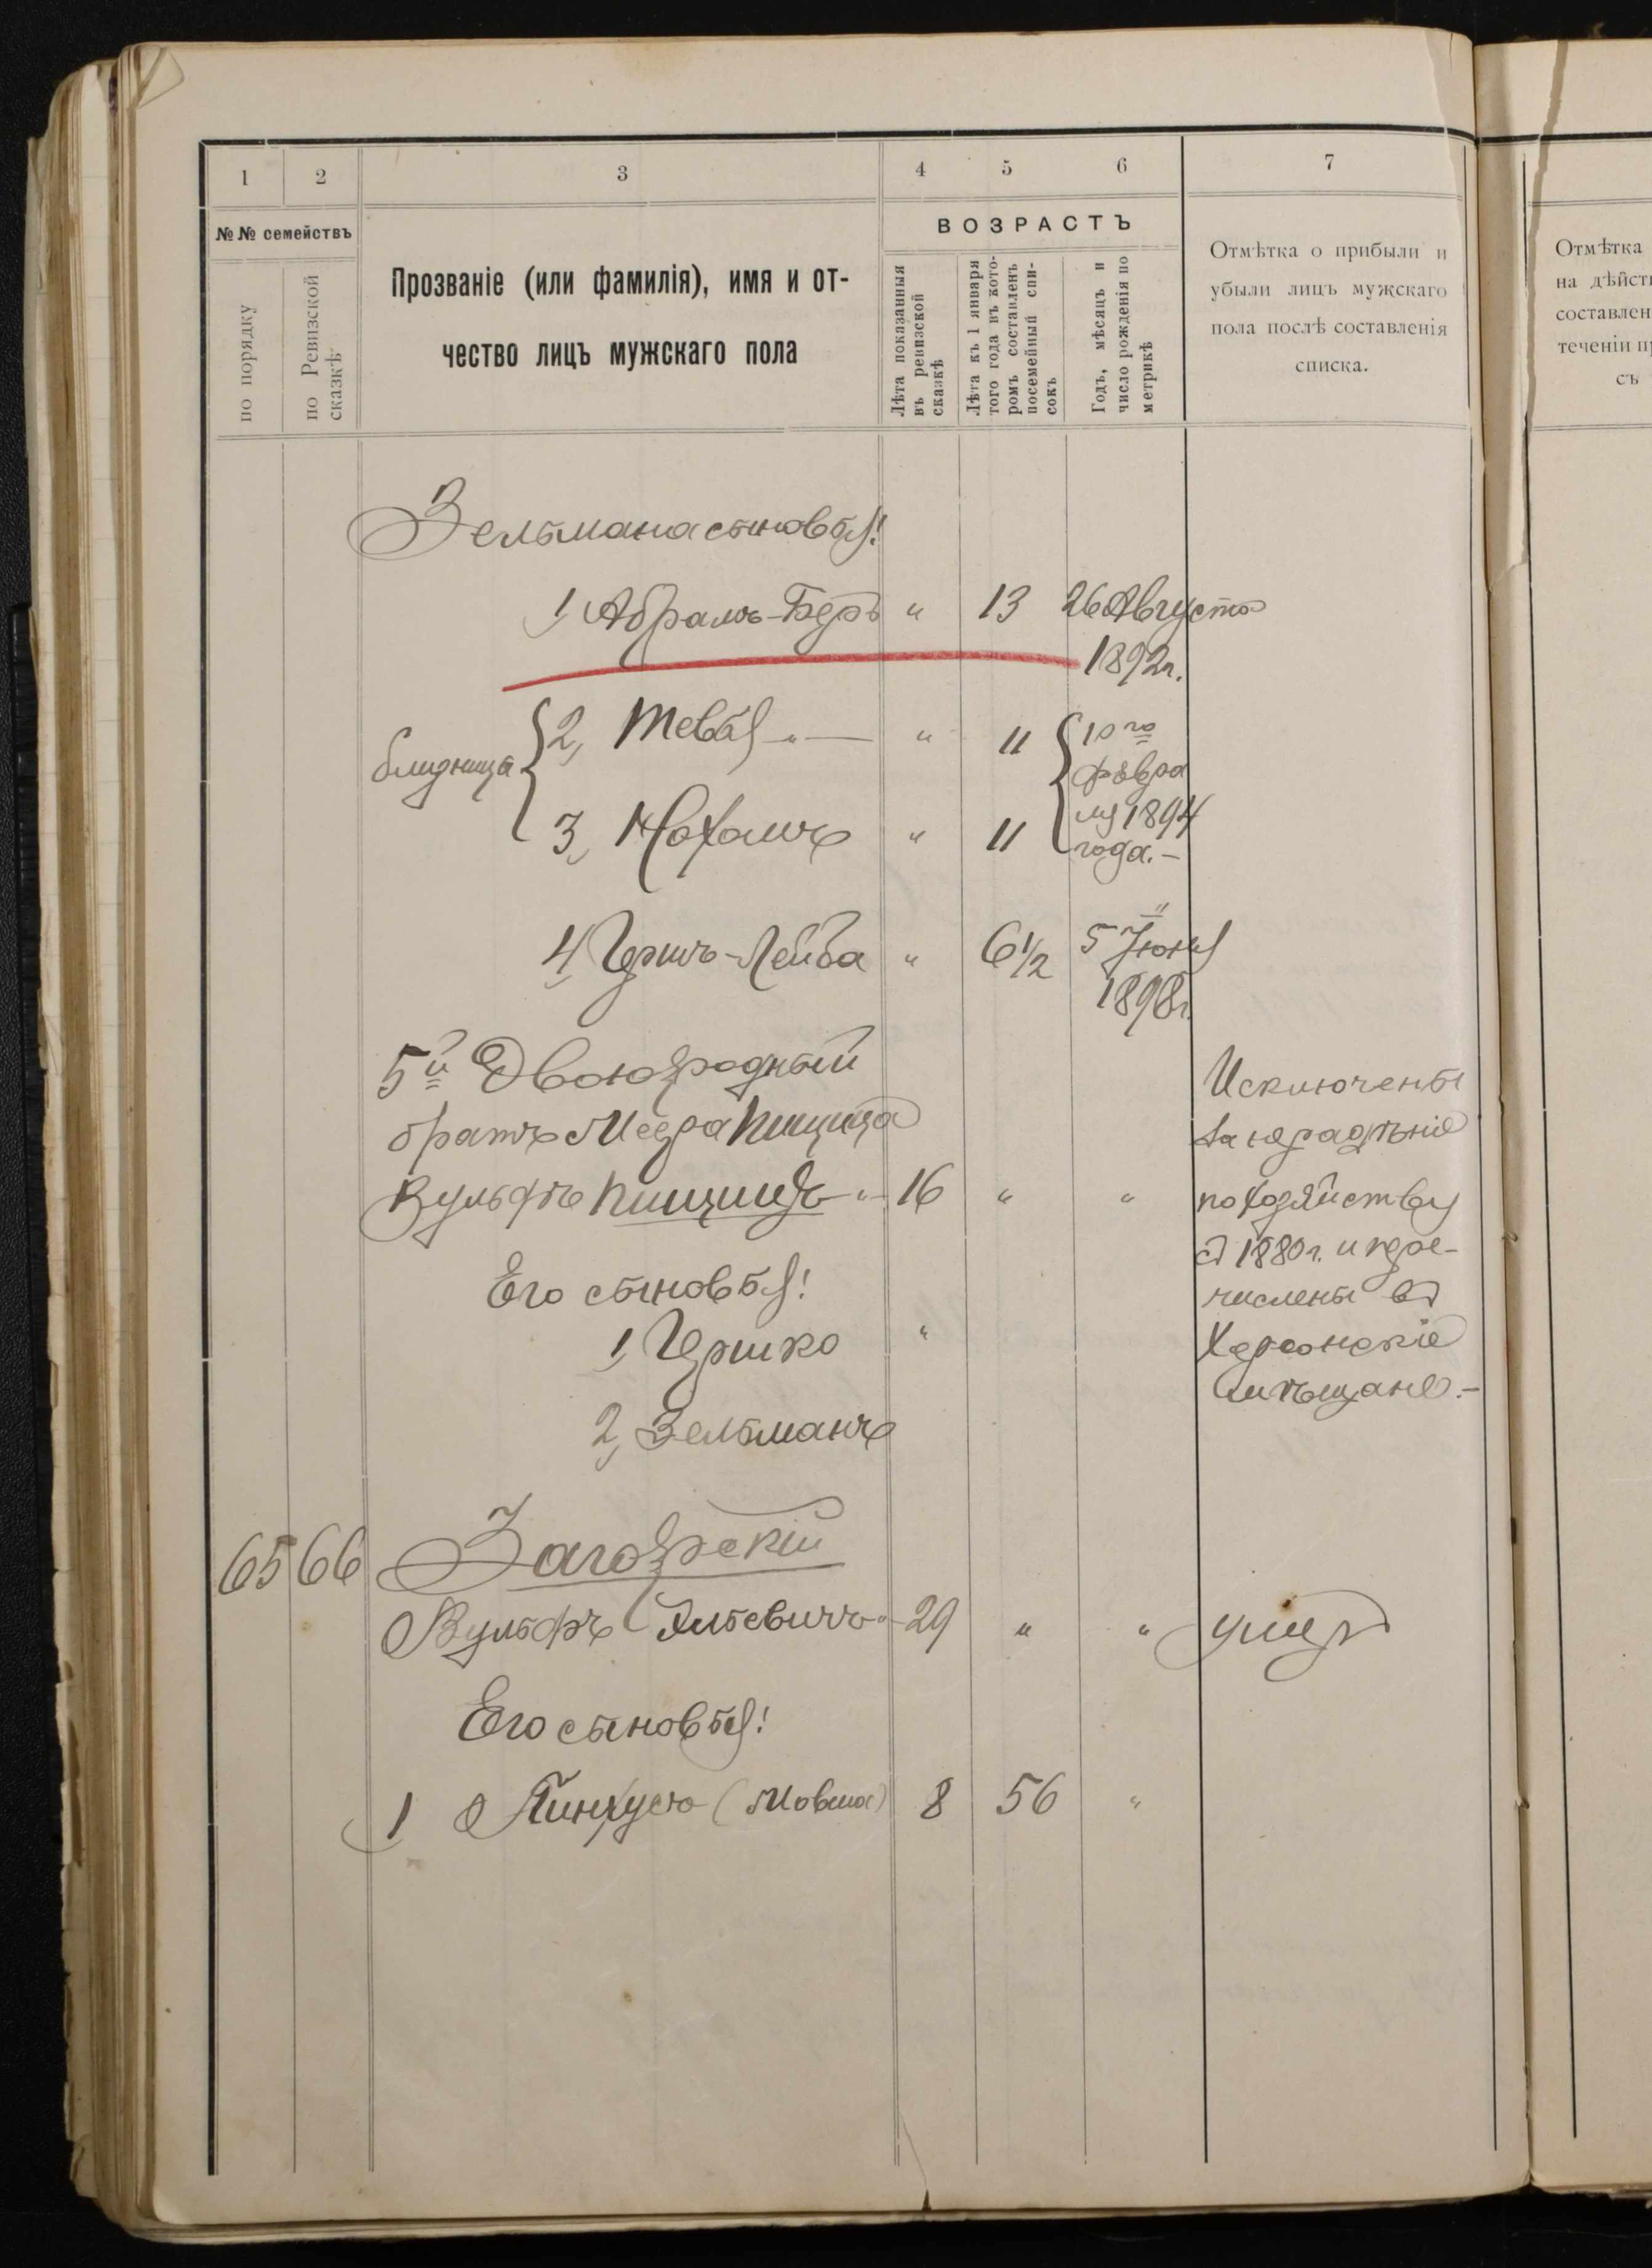 1 2 3 4 5 6 7
№№ семействъ
по порядку
по Ревизской
сказкѣ
Прозваніе (или фамилія), имя и от-
чество лицъ мужскаго пола
ВОЗРАСТЪ
Лѣта показанныя
въ ревизской
сказкѣ
Лѣта къ 1 января
того года въ кото-
ромъ составленъ
посемейный спи-
сокъ
Годъ, мѣсяцъ и
число рожденія по
метрикѣ
Отмѣтка о прибыли и
убыли лицъ мужскаго
пола послѣ составленія
списка.
Отмѣтка
на дѣйст
составлен
теченіи п
съ
Зельмана сыновья!
1, Абрамъ-Беръ " 13 26 Августа
1892 г.
близнеца
2, Тевья " — " 11 10 го
февра
3, Нахамъ " 11 ля 1894
года. —
4, Гершъ-Лейба " 6 1/2 5 Іюня
1898 г.
5й Двоюродный
братъ Меера Пищица
Вульфъ Пищицъ " 16 " "
Исключены
за нерадѣніе
по хозяйству
съ 1880 г. и пере-
числены въ
Херсонскіе
мѣщане. —
Его сыновья!
1, Гершко "
2, Зельманъ
65 66 Загорскій
Вульфъ Эльевичъ " 29 " " умеръ
Его сыновья!
1 Пинхусъ (Мовша) 8 56 "